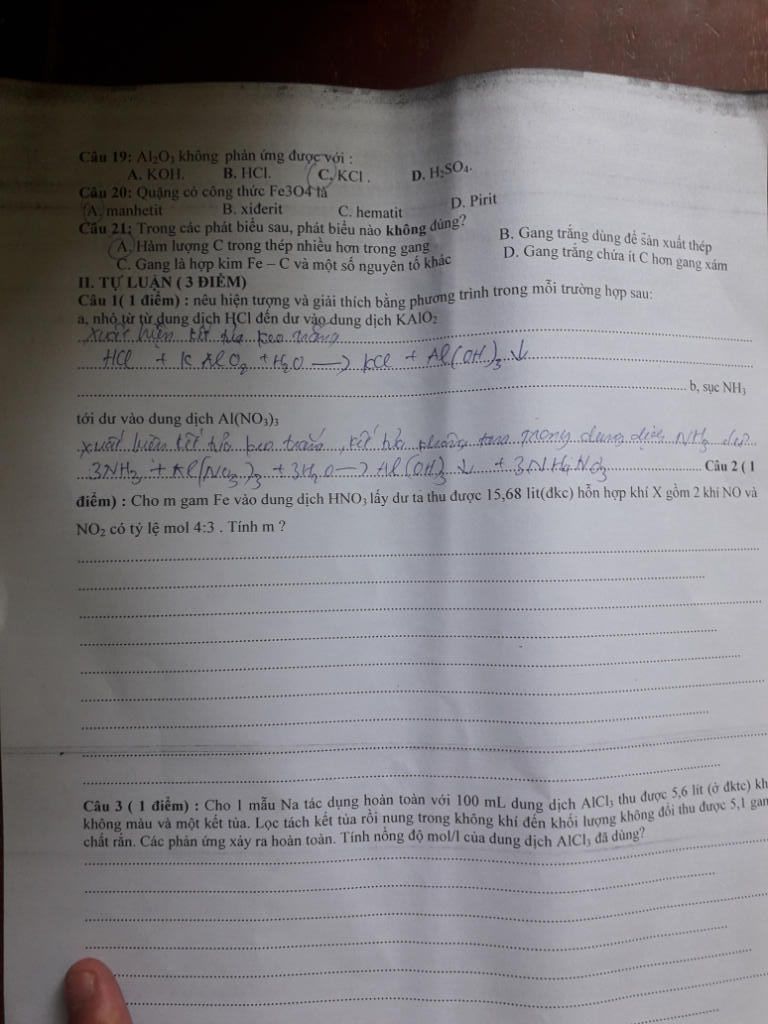 Câu 19: Al₂O₃ không phản ứng được với :
A. KOH. B. HCl. C. KCl . D. H₂SO₄.
Câu 20: Quặng có công thức Fe3O4 là
A. manhetit B. xiđerit C. hematit D. Pirit
Câu 21: Trong các phát biểu sau, phát biểu nào không đúng?
A. Hàm lượng C trong thép nhiều hơn trong gang B. Gang trắng dùng để sản xuất thép
C. Gang là hợp kim Fe – C và một số nguyên tố khác D. Gang trắng chứa ít C hơn gang xám
II. TỰ LUẬN ( 3 ĐIỂM)
Câu 1( 1 điểm) : nêu hiện tượng và giải thích bằng phương trình trong mỗi trường hợp sau:
a, nhỏ từ từ dung dịch HCl đến dư vào dung dịch KAlO₂
xuất hiện kết tủa keo trắng
HCl + KAlO₂ + H₂O → KCl + Al(OH)₃↓
b, sục NH₃
tới dư vào dung dịch Al(NO₃)₃
xuất hiện kết tủa keo trắng, kết tủa không tan trong dung dịch NH₃ dư
3NH₃ + Al(NO₃)₃ + 3H₂O → Al(OH)₃↓ + 3NH₄NO₃ Câu 2 ( 1
điểm) : Cho m gam Fe vào dung dịch HNO₃ lấy dư ta thu được 15,68 lit(đkc) hỗn hợp khí X gồm 2 khí NO và
NO₂ có tỷ lệ mol 4:3 . Tính m ?
Câu 3 ( 1 điểm) : Cho 1 mẫu Na tác dụng hoàn toàn với 100 mL dung dịch AlCl₃ thu được 5,6 lit (ở đktc) kh
không màu và một kết tủa. Lọc tách kết tủa rồi nung trong không khí đến khối lượng không đổi thu được 5,1 gam
chất rắn. Các phản ứng xảy ra hoàn toàn. Tính nồng độ mol/l của dung dịch AlCl₃ đã dùng?